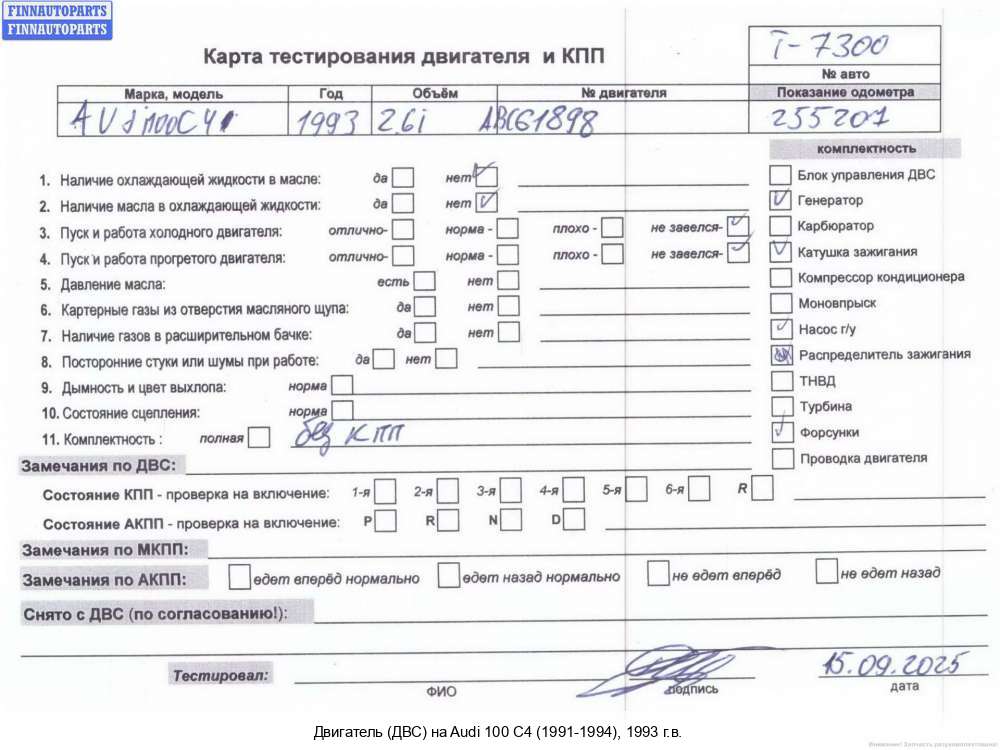 FINNAUTOPARTS
FINNAUTOPARTS
Карта тестирования двигателя и КПП
T-7300
№ авто
Марка, модель Год Объём № двигателя Показание одометра
AUdi 100C4 1993 2.6i ABC61898 255207
комплектность
1. Наличие охлаждающей жидкости в масле: да нет
Блок управления ДВС
2. Наличие масла в охлаждающей жидкости: да нет
Генератор
3. Пуск и работа холодного двигателя: отлично- норма - плохо - не завелся-
Карбюратор
4. Пуск и работа прогретого двигателя: отлично- норма - плохо - не завелся-
Катушка зажигания
5. Давление масла: есть нет
Компрессор кондиционера
6. Картерные газы из отверстия масляного щупа: да нет
Моновпрыск
7. Наличие газов в расширительном бачке: да нет
Насос г/у
8. Посторонние стуки или шумы при работе: да нет
Распределитель зажигания
9. Дымность и цвет выхлопа: норма
ТНВД
10. Состояние сцепления: норма
Турбина
11. Комплектность : полная без КПП
Форсунки
Замечания по ДВС:
Проводка двигателя
Состояние КПП - проверка на включение: 1-я 2-я 3-я 4-я 5-я 6-я R
Состояние АКПП - проверка на включение: P R N D
Замечания по МКПП:
Замечания по АКПП: едет вперёд нормально едет назад нормально не едет вперёд не едет назад
Снято с ДВС (по согласованию!):
Тестировал: 15.09.2025
ФИО подпись дата
Двигатель (ДВС) на Audi 100 C4 (1991-1994), 1993 г.в.
Внимание! Запчасть разукомплектована!